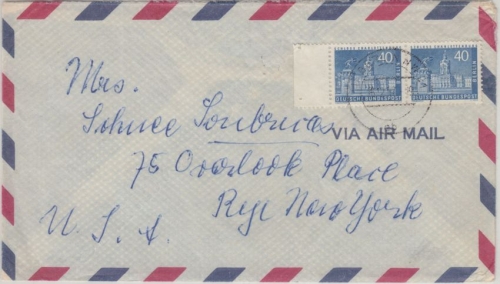 40 40
DEUTSCHE BUNDESPOST DEUTSCHE BUNDESPOST
BERLIN BERLIN
Mrs.
VIA AIR MAIL
75 Overlook Place
Rye New York
U. S. A.